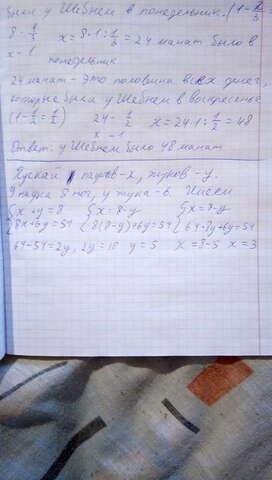 были у Шебнем в понедельник. (1 - 2/3
8 - 1/3   x = 8·1 : 1/3 = 24 манат было в
x - 1   понедельник
24 манат - это половина всех денег,
которые были у Шебнем в воскресенье
(1 - 1/2 = 1/2)   24 - 1/2   x = 24·1 : 1/2 = 48
x - 1
Ответ: у Шебнем было 48 манат
Пускай пауков - x, жуков - y.
У паука 8 ног, у жука - 6. Имеем
{x + y = 8   {x = 8 - y   {x = 8 - y
{8x + 6y = 54   {8(8 - y) + 6y = 54   {64 - 8y + 6y = 54
64 - 54 = 2y, 2y = 10   y = 5   x = 8 - 5   x = 3